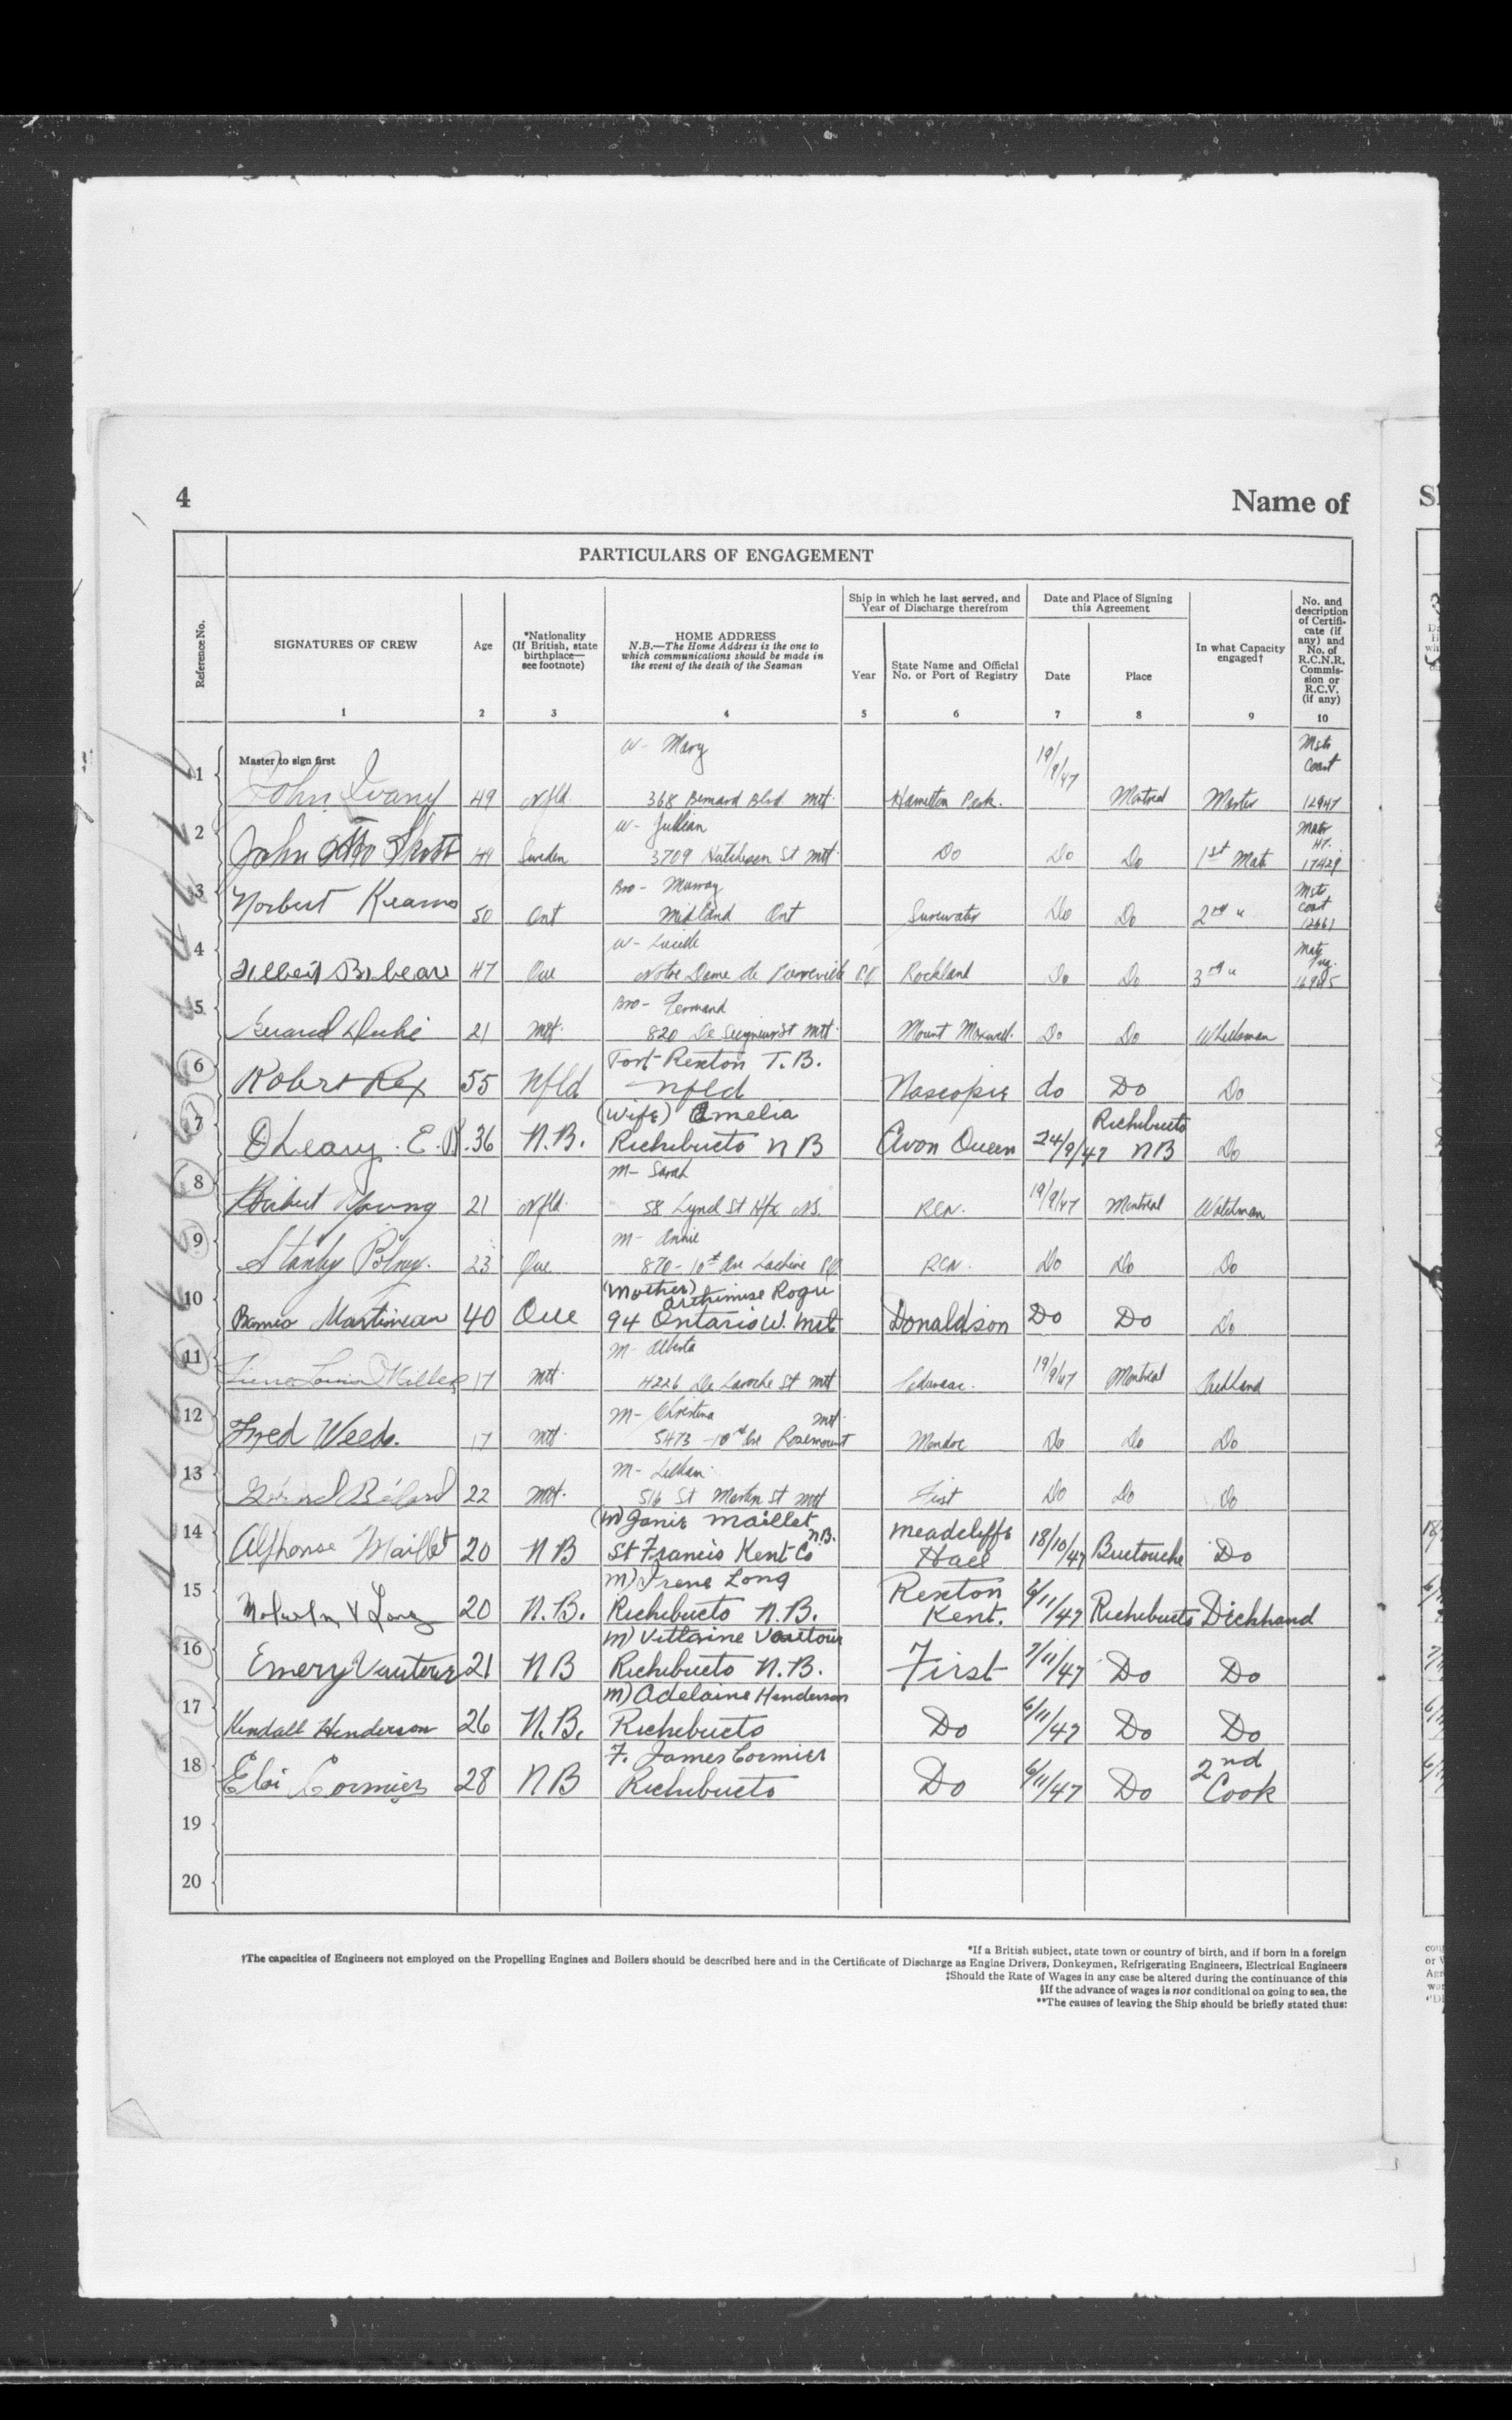 4
Name of
PARTICULARS OF ENGAGEMENT
Reference No.
SIGNATURES OF CREW
Age
*Nationality
(If British, state
birthplace—
see footnote)
HOME ADDRESS
N.B.—The Home Address is the one to
which communications should be made in
the event of the death of the Seaman
Ship in which he last served, and
Year of Discharge therefrom
Year
State Name and Official
No. or Port of Registry
Date and Place of Signing
this Agreement
Date
Place
In what Capacity
engaged†
No. and
description
of Certifi-
cate (if
any) and
No. of
R.C.N.R.
Commis-
sion or
R.C.V.
(if any)
1 2 3 4 5 6 7 8 9 10
Master to sign first
W- Mary 19/9/47
1 John Ivany 49 Nfld. 368 Bernard Blvd Mtl. Hamilton Park. Montreal Master 12947
W- Jullian
2 John Otto Skott 44 Sweden 3709 Hutcheson St Mtl. Do Do Do 1st Mate 17429
Bro- Murray
3 Norbert Kearns 50 Ont Midland Ont Do Do 2nd "
W- Lucille
4 47 Que Notre Dame de Pierreville P.Q Rockland Do Do 3rd "
Bro- Fernand
5 21 Mtl. 820 De St Mtl. Mount Maxwell. Do Do Wheelsman
Port Rexton T.B.
6 Robert Rex 55 Nfld Nfld Nascopie do Do Do
(Wife) Amelia Richibucto
7 OLeary. E. 36 N.B. Richibucto N B Avon Queen 24/9/47 NB Do
M- Sarah
8 Herbert Young 21 Nfld. 58 Lynch St Hfx NS. RCN. 19/9/47 Montreal Watchman
M- Annie
9 Stanley 23 Que 870- 10th Ave Lachine PQ RCN. Do Do Do
(Mother) Arthimise Rogu
10 Martineau 40 Que 94 Ontario W. Mtl Donaldson Do Do Do
M- Alberta
11 Pierre Louis Miller 17 Mtl. 4226 De Laroche St Mtl 19/9/47 Montreal Deckhand
M- Christina Mtl.
12 Fred Weeds. 17 Mtl. 5473 -10th Ave Rosemount Mendoc Do Do Do
M- Lillian
13 22 Mtl. 516 St Martin St Mtl First Do Do Do
(M) Janie Maillet Meadcliffe
14 Alphonse Maillet 20 N B St Francis Kent Co N.B. Hall 18/10/47 Buctouche Do
M) Irene Long Rexton
15 20 N.B. Richibucto N.B. Kent. 6/11/47 Richibucto Dickhand
M) Vitterine Vautour
16 Emery Vautour 21 N B Richibucto N.B. First 7/11/47 Do Do
M) Adelaine Henderson
17 Kendall Henderson 26 N.B. Richibucto Do 6/11/47 Do Do
F. James Cormier 2nd
18 Eloi Cormier 28 N B Richibucto Do 6/11/47 Do Cook
19
20
*If a British subject, state town or country of birth, and if born in a foreign
†The capacities of Engineers not employed on the Propelling Engines and Boilers should be described here and in the Certificate of Discharge as Engine Drivers, Donkeymen, Refrigerating Engineers, Electrical Engineers
‡Should the Rate of Wages in any case be altered during the continuance of this
§If the advance of wages is not conditional on going to sea, the
**The causes of leaving the Ship should be briefly stated thus: